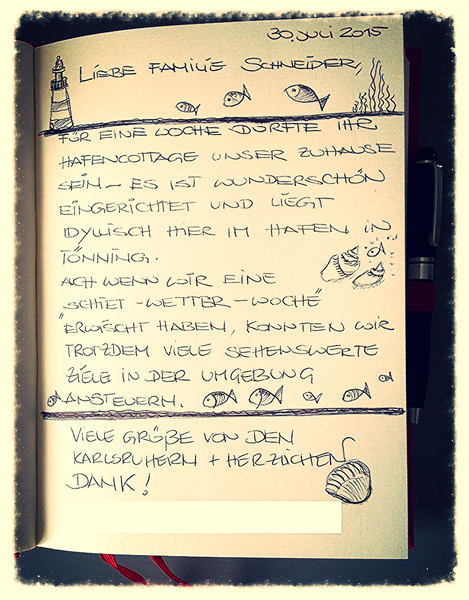 30. JULI 2015
LIEBE FAMILIE SCHNEIDER,
FÜR EINE WOCHE DURFTE IHR
HAFENCOTTAGE UNSER ZUHAUSE
SEIN – ES IST WUNDERSCHÖN
EINGERICHTET UND LIEGT
IDYLLISCH HIER IM HAFEN IN
TÖNNING.
ACH WENN WIR EINE
„SCHIET-WETTER-WOCHE"
ERWISCHT HABEN, KONNTEN WIR
TROTZDEM VIELE SEHENSWERTE
ZIELE IN DER UMGEBUNG
ANSTEUERN.
VIELE GRÜßE VON DEN
KARLSRUHERN + HERZLICHEN
DANK!